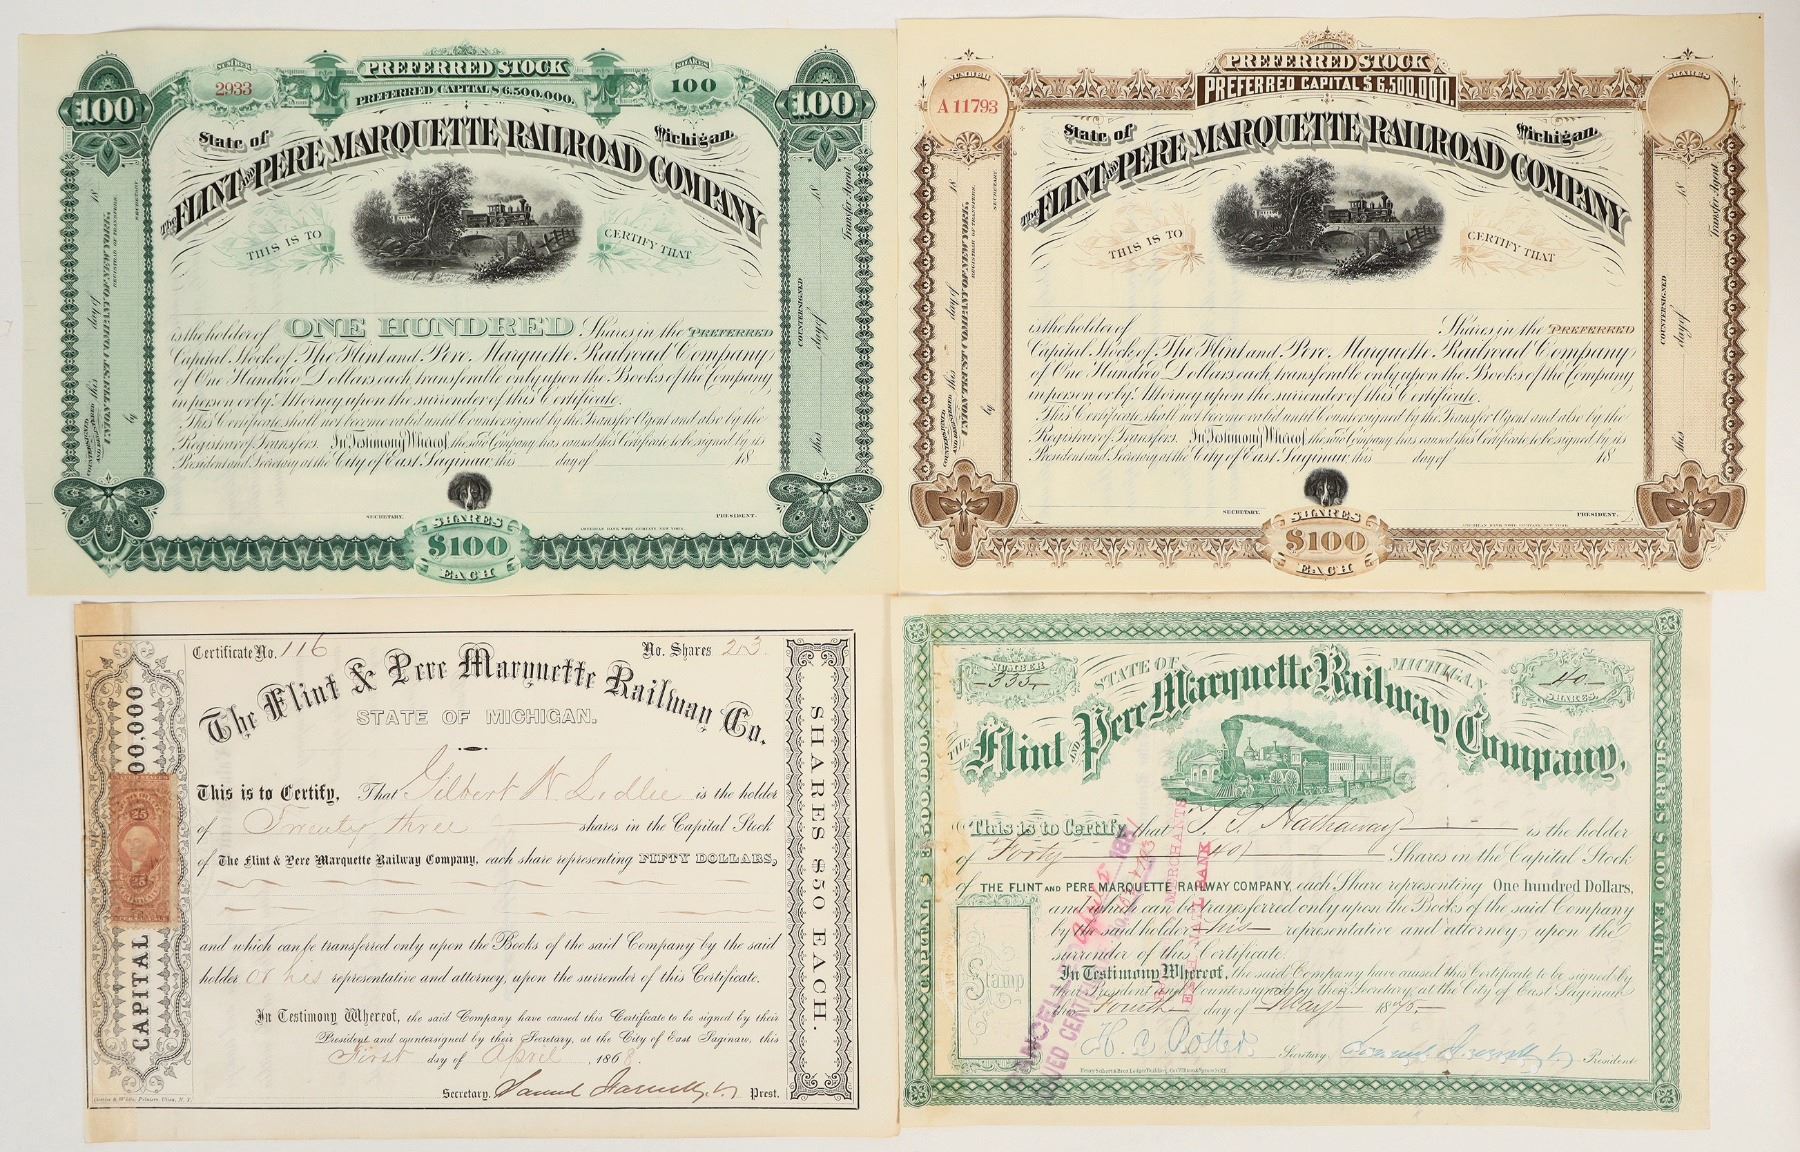 NUMBER
2933
PREFERRED STOCK
PREFERRED CAPITAL $6,500,000.
SHARES
100
100
100
State of Michigan.
The FLINT AND PERE MARQUETTE RAILROAD COMPANY
THIS IS TO CERTIFY THAT
is the holder of ONE HUNDRED Shares in the PREFERRED
Capital Stock of The Flint and Pere Marquette Railroad Company
of One Hundred Dollars each, transferable only upon the Books of the Company
in person or by Attorney upon the surrender of this Certificate.
This Certificate shall not become valid until Countersigned by the Transfer Agent and also by the
Registrar of Transfers. In Testimony Whereof, the said Company has caused this Certificate to be signed by its
President and Secretary at the City of East Saginaw, this day of 18
SECRETARY. PRESIDENT.
AMERICAN BANK NOTE COMPANY NEW YORK.
SHARES
$100
EACH
COUNTERSIGNED AND REGISTERED this day of 18
UNION TRUST COMPANY OF NEW YORK,
REGISTRAR OF TRANSFERS.
by SECRETARY.
COUNTERSIGNED
this day of 18
Transfer Agent
NUMBER
A 11793
PREFERRED STOCK
PREFERRED CAPITAL $6,500,000.
SHARES
State of Michigan.
The FLINT AND PERE MARQUETTE RAILROAD COMPANY
THIS IS TO CERTIFY THAT
is the holder of Shares in the PREFERRED
Capital Stock of The Flint and Pere Marquette Railroad Company
of One Hundred Dollars each, transferable only upon the Books of the Company
in person or by Attorney upon the surrender of this Certificate.
This Certificate shall not become valid until Countersigned by the Transfer Agent and also by the
Registrar of Transfers. In Testimony Whereof, the said Company has caused this Certificate to be signed by its
President and Secretary at the City of East Saginaw, this day of 18
SECRETARY. PRESIDENT.
AMERICAN BANK NOTE COMPANY NEW YORK.
SHARES
$100
EACH
COUNTERSIGNED AND REGISTERED this day of 18
UNION TRUST COMPANY OF NEW YORK,
REGISTRAR OF TRANSFERS.
by SECRETARY.
COUNTERSIGNED
this day of 18
Transfer Agent
Certificate No. 116 No. Shares 23
The Flint & Pere Marquette Railway Co.
STATE OF MICHIGAN.
This is to Certify, That Gilbert N Lidlie is the holder
of Twenty three shares in the Capital Stock
of The Flint & Pere Marquette Railway Company, each share representing FIFTY DOLLARS,
and which can be transferred only upon the Books of the said Company by the said
holder or his representative and attorney, upon the surrender of this Certificate.
In Testimony Whereof, the said Company have caused this Certificate to be signed by their
President and countersigned by their Secretary, at the City of East Saginaw, this
First day of April, 1868.
Secretary. Prest.
CAPITAL 00,000
25 25
SHARES $50 EACH.
NUMBER
335
STATE OF MICHIGAN
40
SHARES
THE Flint AND Pere Marquette Railway Company,
This is to Certify that T. S. Hathaway is the holder
of Forty (40) Shares in the Capital Stock
of THE FLINT AND PERE MARQUETTE RAILWAY COMPANY, each Share representing One hundred Dollars,
and which can be transferred only upon the Books of the said Company
by the said holder his representative and attorney, upon the
surrender of this Certificate.
In Testimony Whereof, the said Company have caused this Certificate to be signed by
their President and Countersigned by their Secretary, at the City of East Saginaw
this Fourth day of May 1875
H. C. Potter Secretary President
Stamp
SHARES $100 EACH
MERCHANTS
NATL BANK